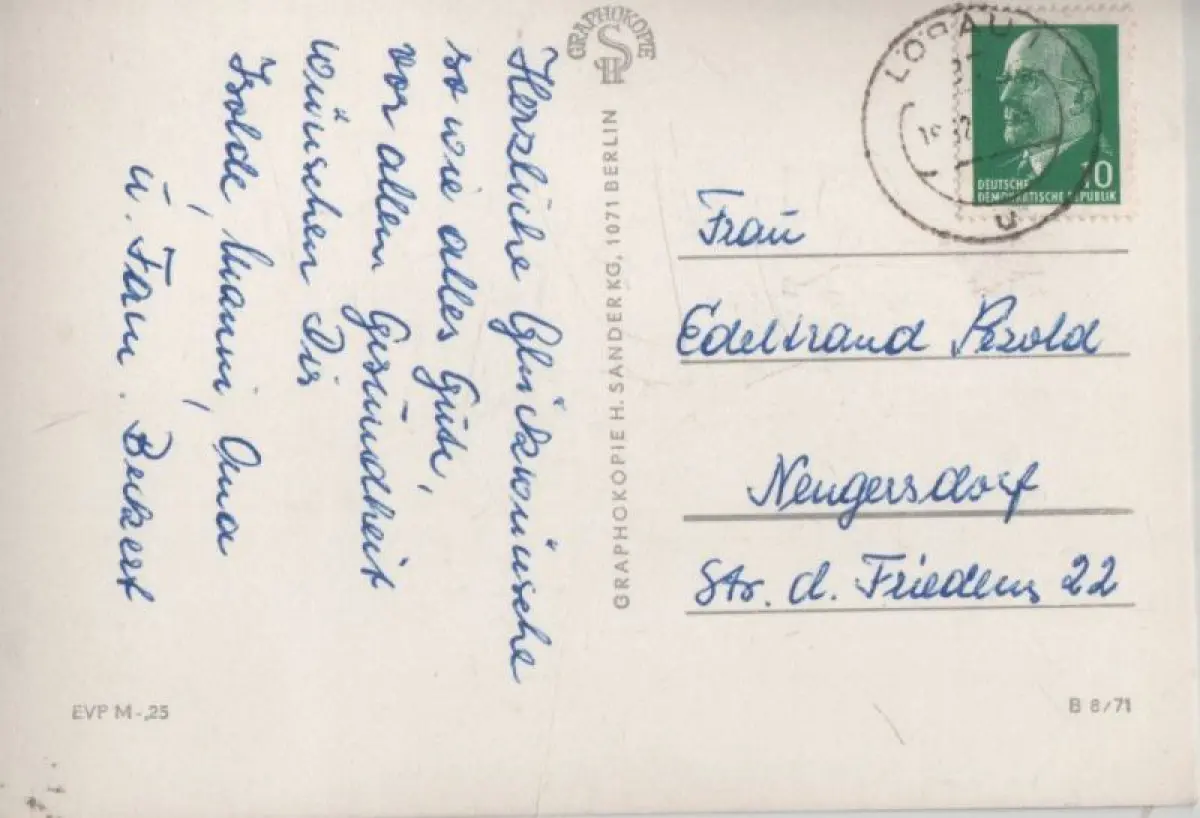 Herzliche Glückwünsche
so wie alles Gute,
vor allem Gesundheit
wünschen Dir
Isolde, Manni, Oma
u. Fam. Beckert
GRAPHOKOPIE
H S
GRAPHOKOPIE H. SANDER KG, 1071 BERLIN
LÖBAU 1
DEUTSCHE
DEMOKRATISCHE REPUBLIK
10
Frau
Edeltraud Pezold
Neugersdorf
Str. d. Friedens 22
EVP M -,25
B 8/71